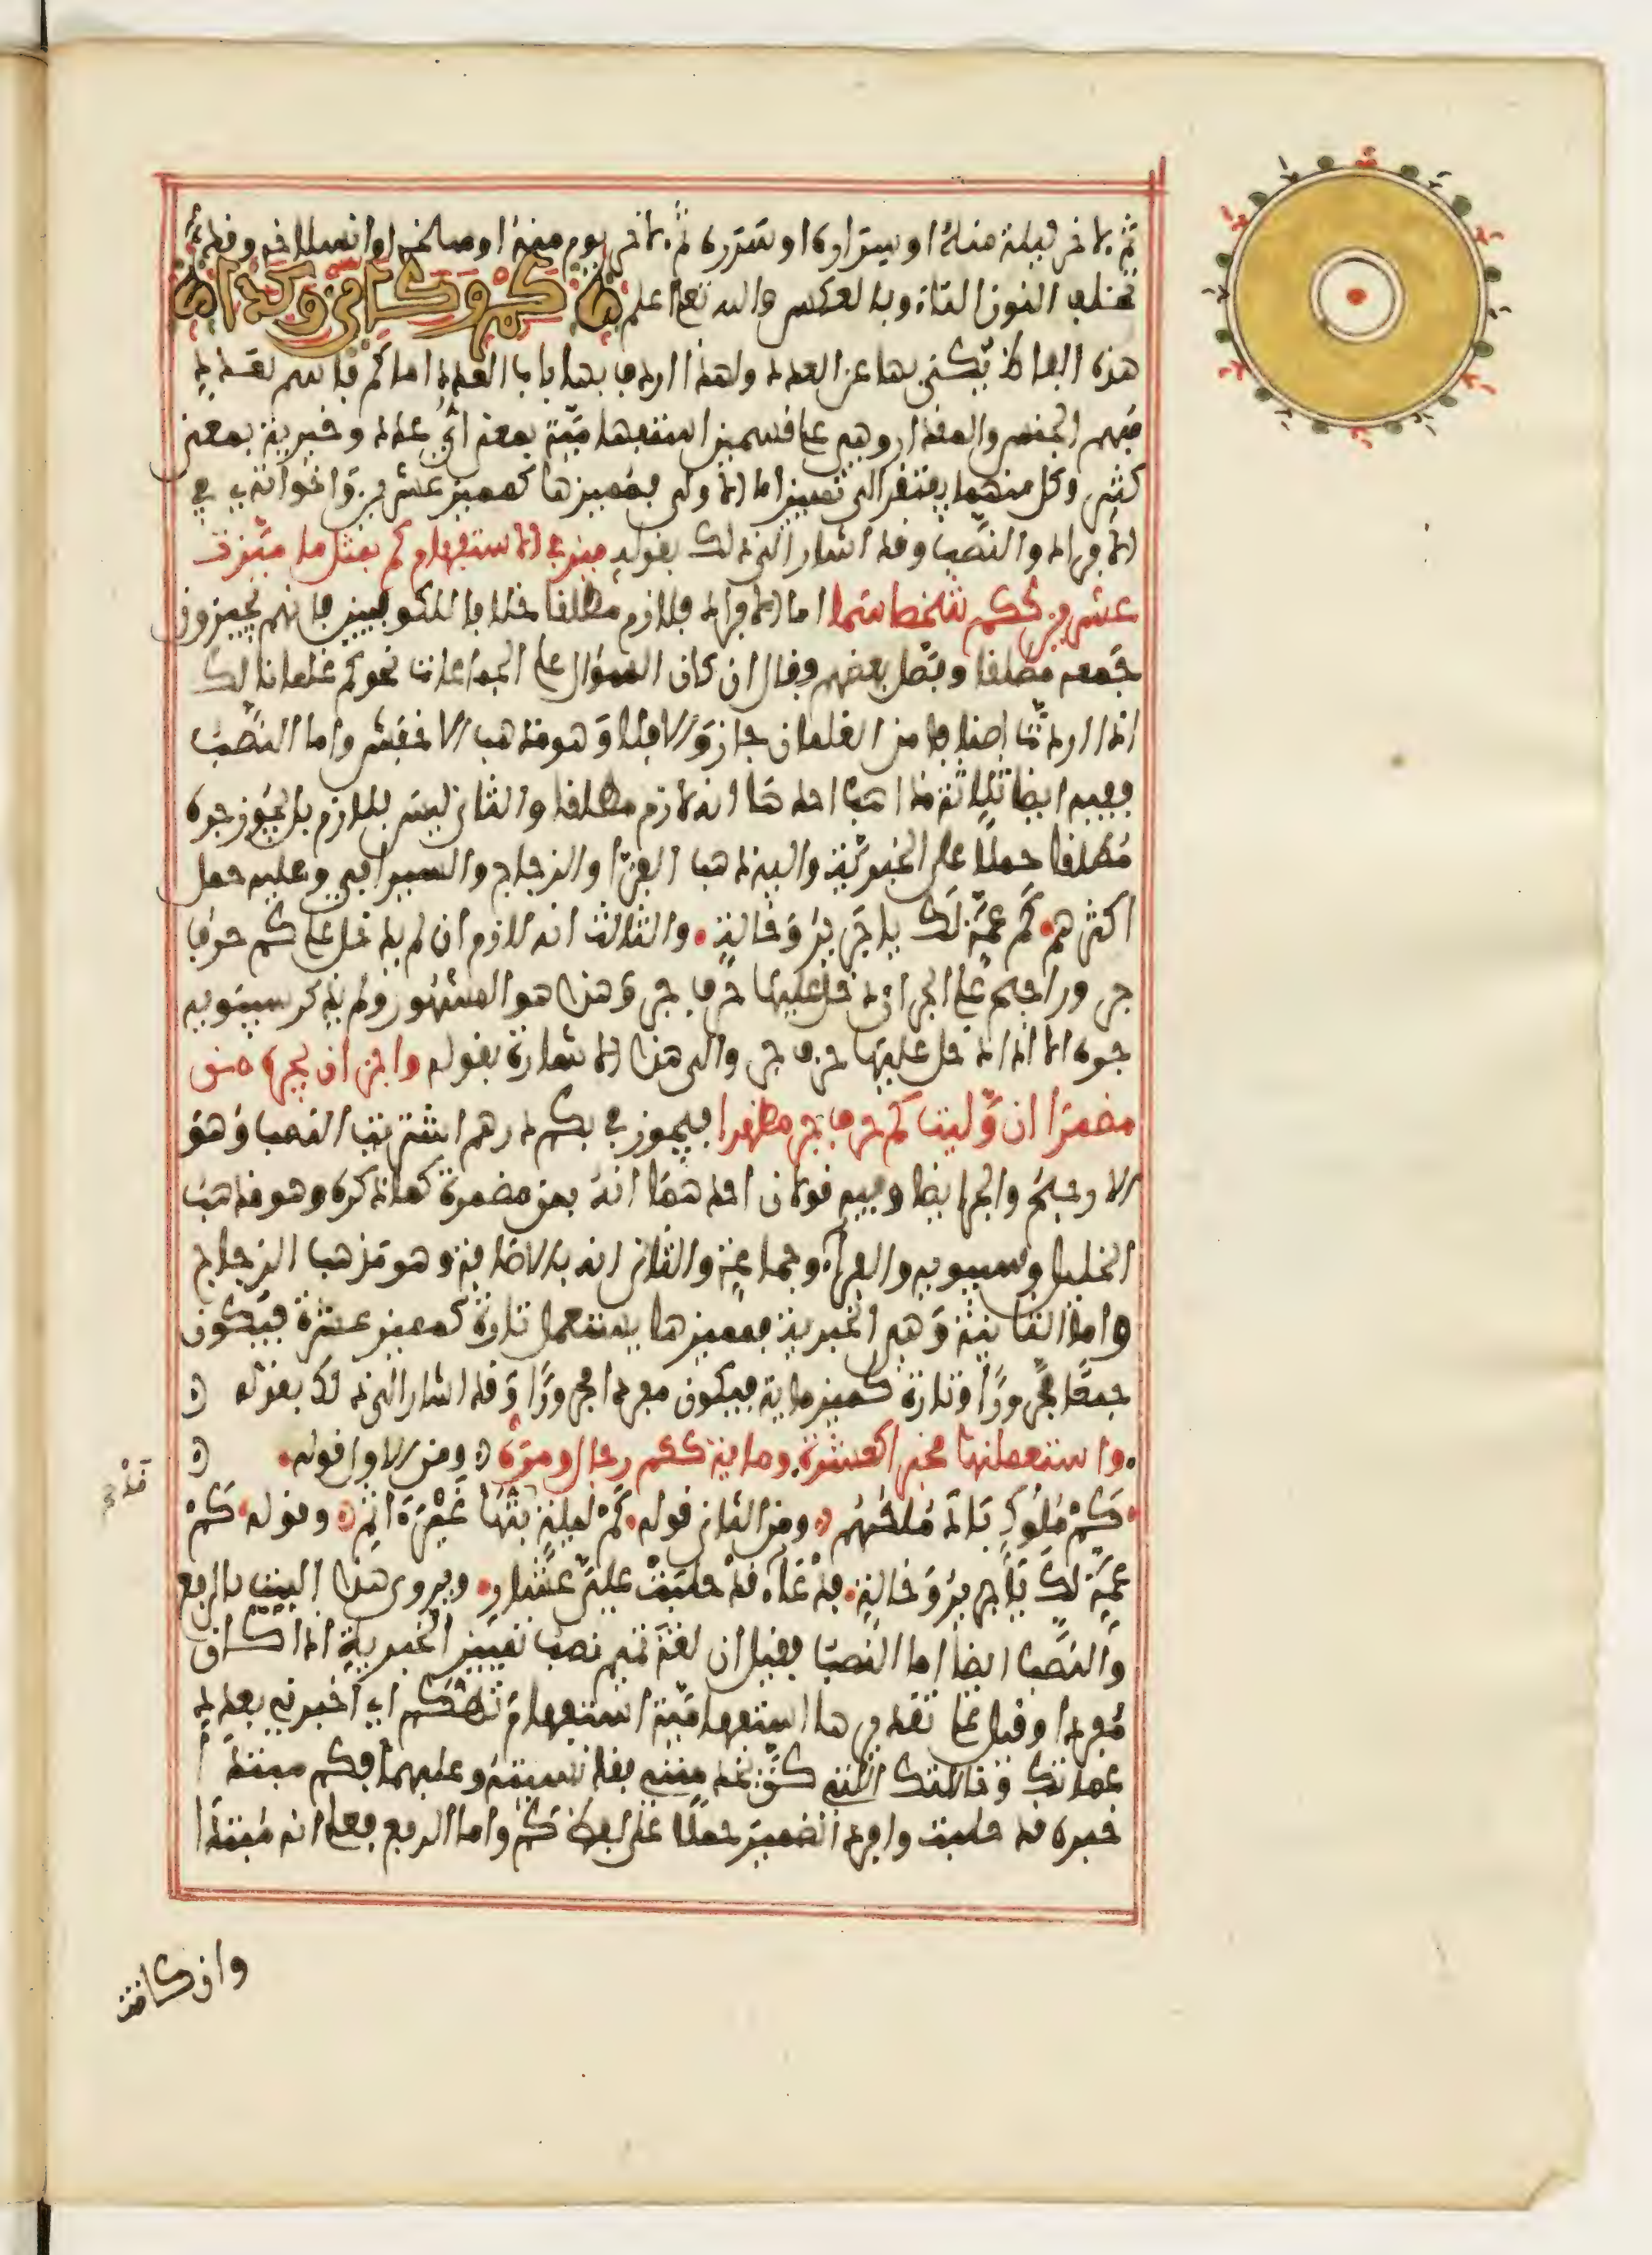 ثم لاخر ليلة منه او سراره او سرره ثم لاخر يوم منه او سلخه او انسلاخه وقد
تخلف النون التاء وبالعكس والله تعلى اعلم كم وكأين وكذا
هذه الفاظ يكنى بها عن العدد ولهذا اردف بها باب العدد اما كم فاسم لعدد
مبهم الجنس والمقدار وهي على قسمين استفهامية بمعنى اي عدد وخبرية بمعنى
كثير وكل منهما يفتقر الى تمييز اما الاولى فمميزها كمميز عشرين واخواته في
الافراد والنصب وقد اشار الى ذلك بقوله ميز في الاستفهام كم بمثل ما ميزت
عشرين ككم شخصا سما اما الافراد فلازم مطلقا خلافا للكوفيين فانهم يجيزون
جمعه مطلقا وفصل بعضهم وقال ان كان السؤال على الجماعات نحو كم غلمانا لك
اذا اردت اصنافا من الغلمان جاز والا فلا وهو مذهب الاخفش واما النصب
ففيه ايضا ثلاثة مذاهب احدها انه لازم مطلقا والثاني ليس بلازم بل يجوز جره
مطلقا حملا على الخبرية واليه ذهب الفرا والزجاج والسيرافي وعليه حمل
اكثرهم كم عمة لك يا جرير وخالة والثالث انه لازم ان لم يدخل على كم حرف
جر وراجح على الجر ان دخل عليها حرف جر وهذا هو المشهور ولم يذكر سيبويه
جره الا اذا دخل عليها حرف جر والى هذا الاشارة بقوله واجز ان تجره من
مضمرا ان وليت كم حرف جر مظهرا فيجوز في بكم درهم اشتريت النصب وهو
الارجح والجر ايضا وفيه قولان احدهما انه بمن مضمرة كما ذكره وهو مذهب
الخليل وسيبويه والفراء وجماعة والثاني انه بالاضافة وهو مذهب الزجاج
واما الثانية وهي الخبرية فمميزها يستعمل تارة كمميز عشرة فيكون
جمعا مجرورا وتارة كمميز ماية فيكون مفردا مجرورا وقد اشار الى ذلك بقوله
واستعملنها مخبرا كعشرة وماية ككم رجال او مره ومن الاول قوله
كم ملوك باد ملكهم ومن الثاني قوله كم ليلة بتها غير اثم وقوله كم
عمة لك يا جرير وخالة فدعاء قد حلبت علي عشار ويروى هذا البيت بالرفع
والنصب ايضا اما النصب فقيل ان لغة تميم نصب تمييز الخبرية اذا كان
مفردا وقيل على تقديرها استفهامية استفهام تهكم اي اخبرني بعدد
عماتك وخالاتك اللاتي كن يخدمنني فقد نسيته وعليهما فكم مبتدا
خبره قد حلبت وافرد الضمير حملا على لفظ كم واما الرفع فعلى انه مبتدا
وان كانت